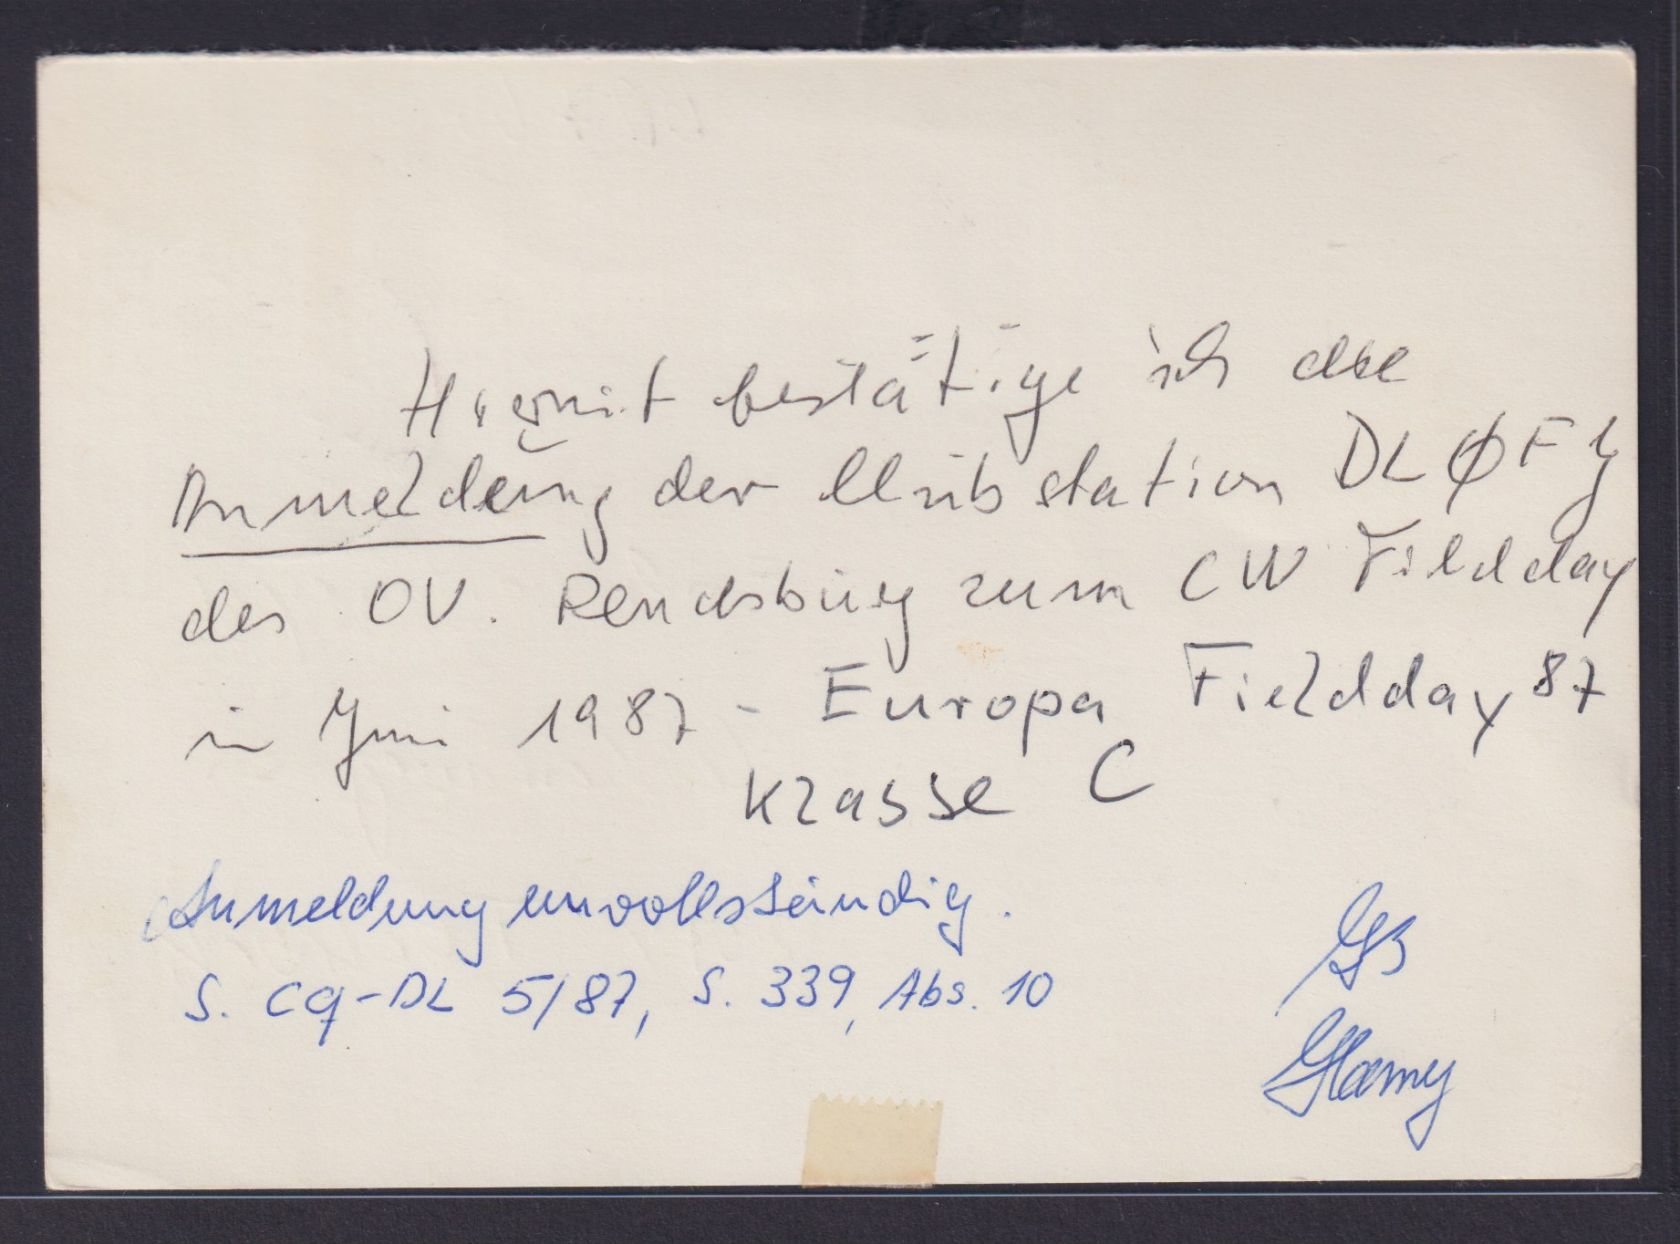 Hiermit bestätige ich die
Anmeldung der Clubstation DLØFY
des OV. Rendsburg zum CW Fieldday
in Juni 1987 - Europa Fieldday 87
Klasse C
Anmeldung unvollständig.
S. cq-DL 5/87, S. 339, Abs. 10